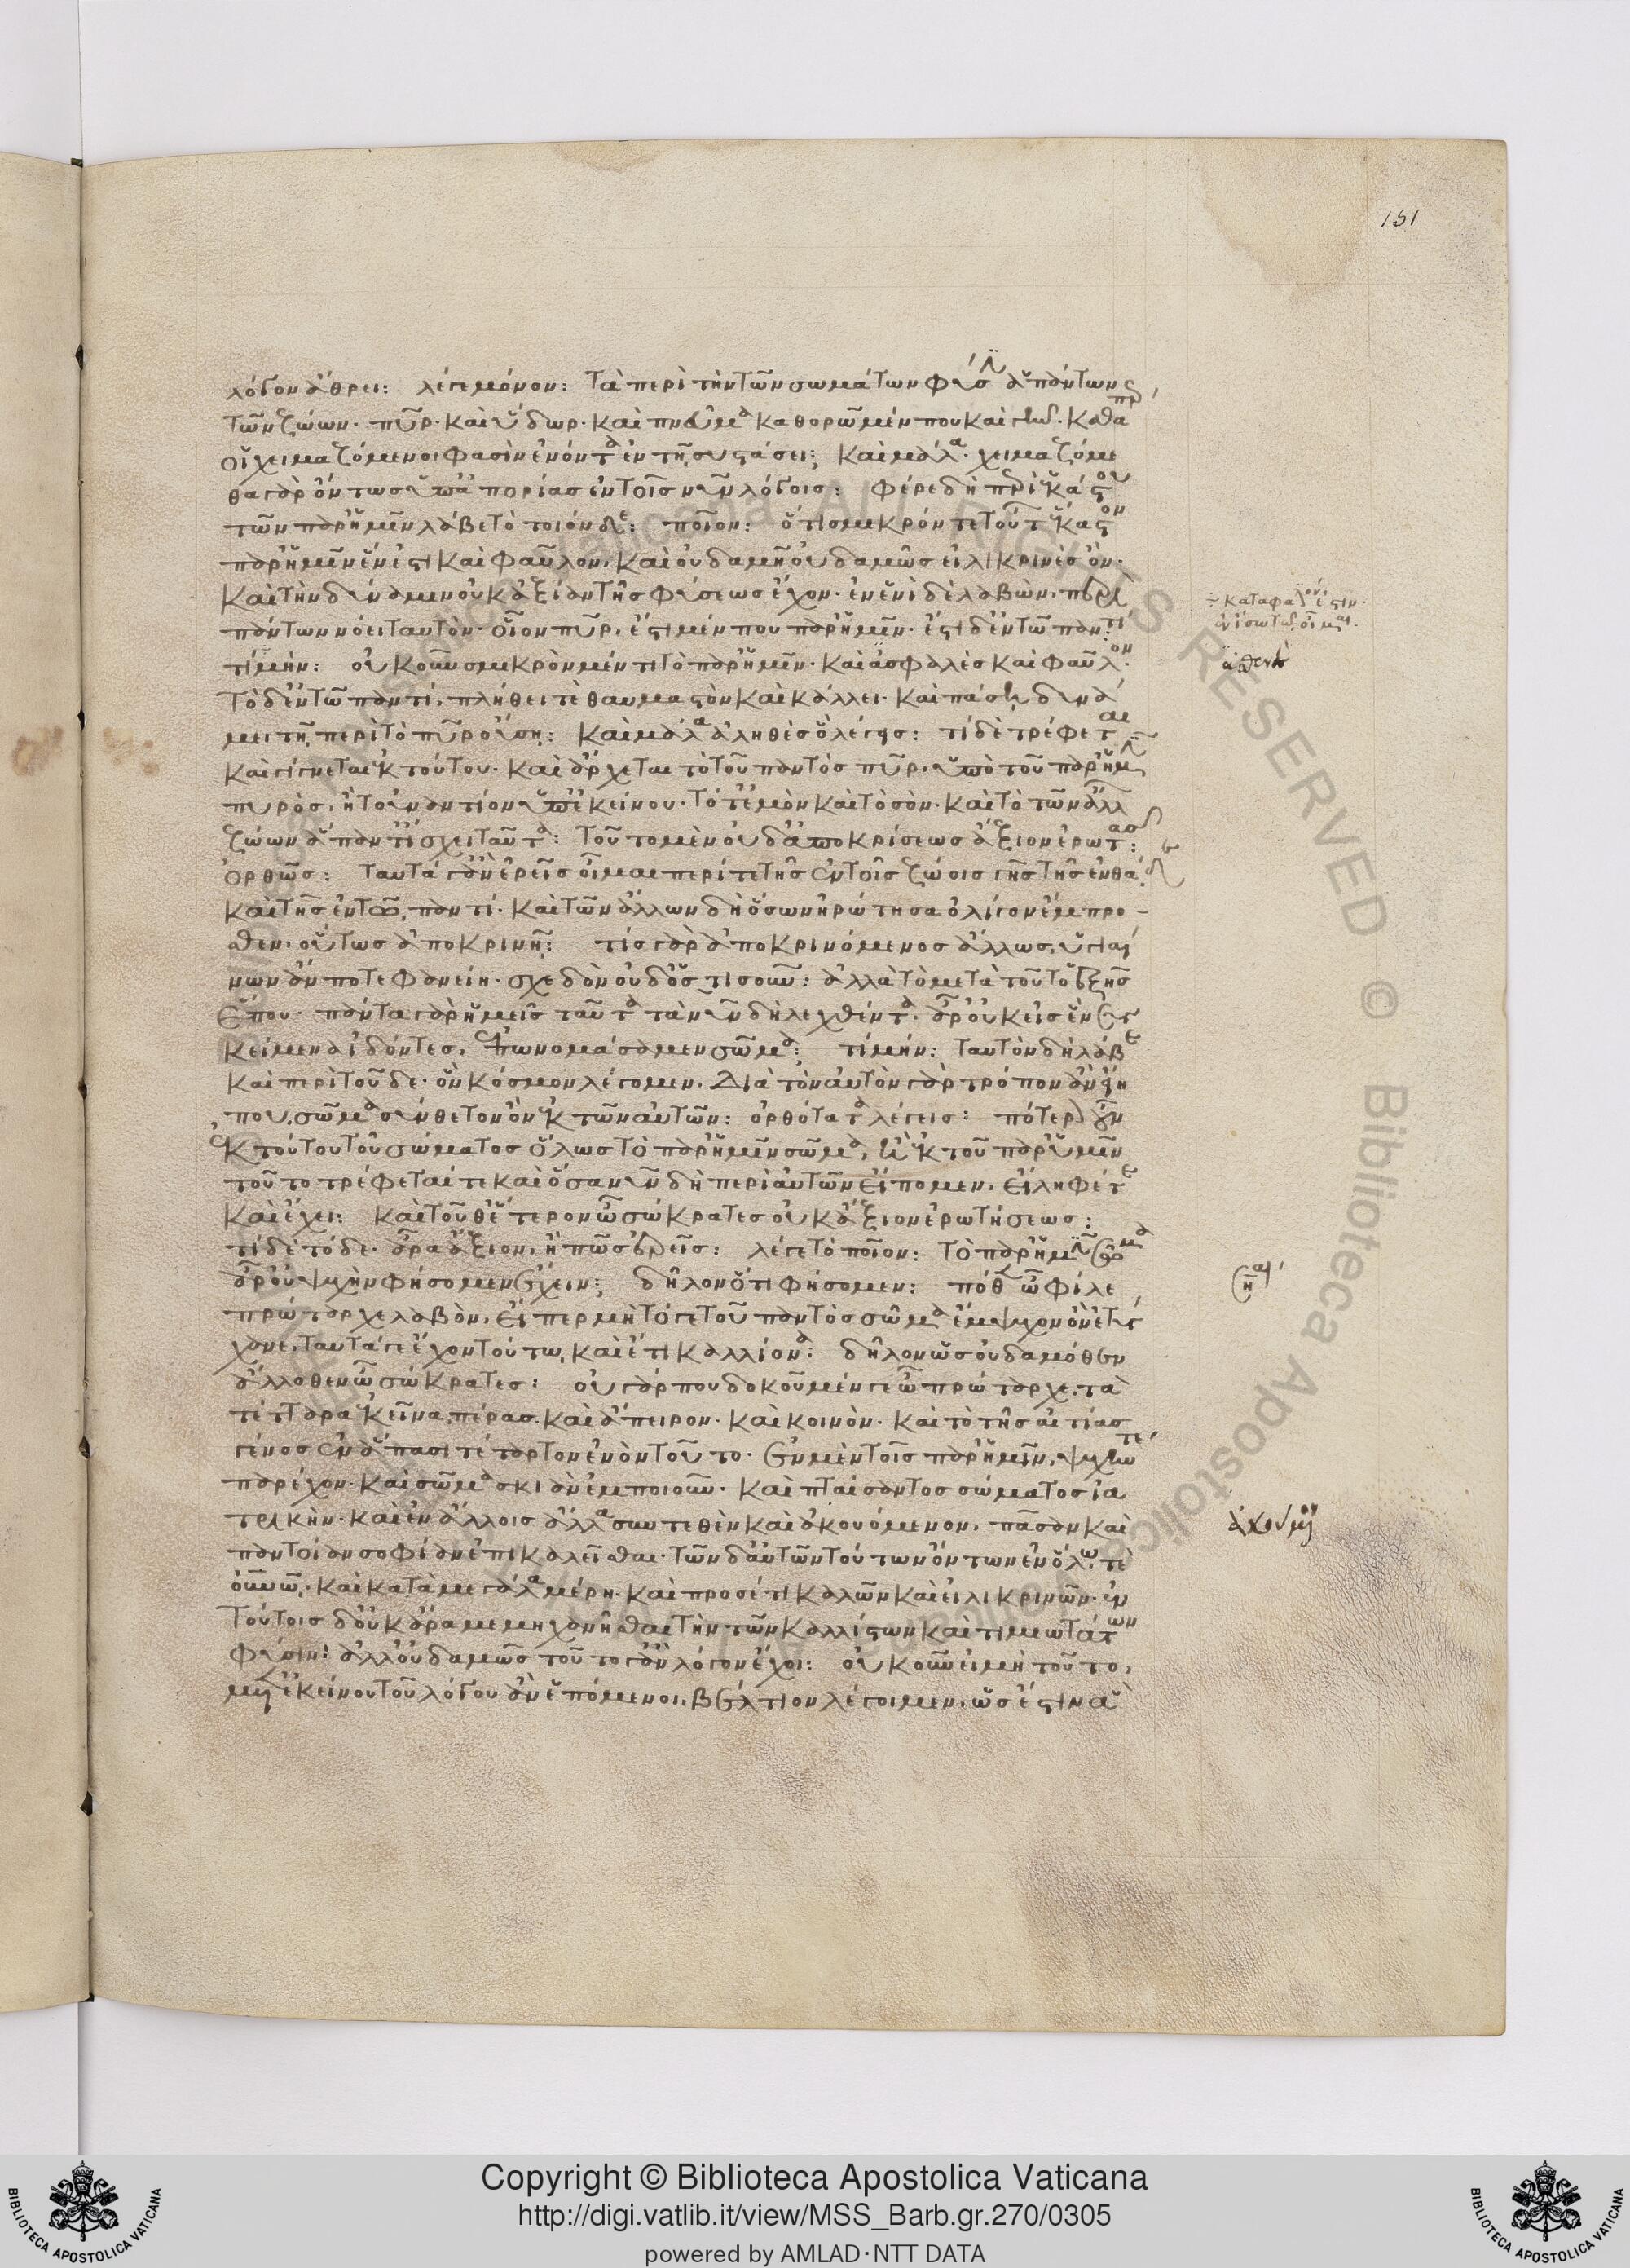 151
λόγον ἄθρει: λέγε μόνον: τὰ περὶ τὴν τῶν σωμάτων φύσιν ἁπάντων
τῶν ζώων· πῦρ· καὶ ὕδωρ· καὶ πνεῦμα καθορῶμέν που καὶ γῆν· καθάπερ
οἱ χειμαζόμενοι φασὶν ἐνόντα ἐν τῇ συστάσει: καὶ μάλα· χειμαζόμε
θα γὰρ ὄντως ὑπ' ἀπορίας ἐν τοῖς νῦν λόγοις: φέρε δὴ περὶ ἑκάστου
τῶν παρ' ἡμῖν λάβε τὸ τοιόνδε: ποῖον: ὅτι σμικρόν τε τούτων ἕκαστον
παρ' ἡμῖν ἔνεστι καὶ φαῦλον, καὶ οὐδαμῇ οὐδαμῶς εἰλικρινὲς ὄν·
καὶ τὴν δύναμιν οὐκ ἀξίαν τῆς φύσεως ἔχον· ἐν ἑνὶ δὲ λαβὼν, περὶ
πάντων νόει ταυτόν· οἷον πῦρ, ἔστι μέν που παρ' ἡμῖν· ἔστι δ' ἐν τῷ παντί:
τί μήν: οὐκοῦν σμικρὸν μέν τι τὸ παρ' ἡμῖν· καὶ ἀσφαλὲς καὶ φαῦλον·
τὸ δ' ἐν τῷ παντί, πλήθει τὲ θαυμαστὸν καὶ κάλλει· καὶ πάσῃ δυνά
μει τῇ περὶ τὸ πῦρ οὔσῃ: καὶ μάλα ἀληθὲς ὃ λέγεις: τί δὲ τρέφεται
καὶ γίγνεται ἐκ τούτου· καὶ ἄρχεται τὸ τοῦ παντὸς πῦρ, ὑπὸ τοῦ παρ' ἡμῖν
πυρὸς, ἢ τοὐναντίον ὑπ' ἐκείνου· τό τ' ἐμὸν καὶ τὸ σὸν· καὶ τὸ τῶν ἄλλων
ζώων ἅπαντ' ἴσχει ταῦτα: τοῦτο μὲν οὐδ' ἀποκρίσεως ἄξιον ἐρωτᾷς:
ὀρθῶς: ταυτὰ γὰρ ἐρεῖς οἶμαι περί τε τῆς ἐν τοῖς ζώοις γῆς τῆς ἐνθάδε
καὶ τῆς ἐν τῷ παντί· καὶ τῶν ἄλλων δὴ ὅσων ἠρώτησα ὀλίγον ἔμπρο-
σθεν, οὕτως ἀποκρινῇ: τίς γὰρ ἀποκρινόμενος ἄλλως, ὑγιαί
νων ἄν ποτε φανείη· σχεδὸν οὐδ' ὅστισοῦν: ἀλλὰ τὸ μετὰ τοῦτο ἑξῆς
ἕπου· πάντα γὰρ ἡμεῖς ταῦτα τὰ νῦν δὴ λεχθέντα· ἆρ' οὐκ εἰς ἓν συγ
κείμενα ἰδόντες, ἐπωνομάσαμεν σῶμα: τί μήν: ταυτὸν δὴ λάβε
καὶ περὶ τοῦδε· ὃν κόσμον λέγομεν. διὰ τὸν αὐτὸν γὰρ τρόπον ἂν εἴη
που, σῶμα σύνθετον ὂν ἐκ τῶν αὐτῶν: ὀρθότατα λέγεις: πότερον οὖν
ἐκ τούτου τοῦ σώματος ὅλως τὸ παρ' ἡμῖν σῶμα, ἢ ἐκ τοῦ παρ' ἡμῖν
τοῦτο τρέφεταί τε καὶ ὅσα νῦν δὴ περὶ αὐτῶν εἴπομεν, εἴληφέτε
καὶ ἔχει: καὶ τοῦθ' ἕτερον ὦ σώκρατες οὐκ ἄξιον ἐρωτήσεως:
τί δὲ τόδε· ἆρα ἄξιον, ἢ πῶς ἐρεῖς: λέγε τὸ ποῖον: τὸ παρ' ἡμῖν σῶμα
ἆρ' οὐ ψυχὴν φήσομεν ἔχειν: δῆλον ὅτι φήσομεν: πόθεν ὦ φίλε
πρώταρχε λαβὸν, εἴπερ μὴ τό γε τοῦ παντὸς σῶμα ἔμψυχον ὂν ἐτύγ
χανε, ταυτά γε ἔχον τούτῳ, καὶ ἔτι καλλίονα: δῆλον ὡς οὐδαμόθεν
ἄλλοθεν ὦ σώκρατες: οὐ γάρ που δοκοῦμέν γε ὦ πρώταρχε, τὰ
τέτταρα ἐκεῖνα, πέρας· καὶ ἄπειρον· καὶ κοινὸν· καὶ τὸ τῆς αἰτίας
γένος ἐν ἅπασι τέταρτον ἐνὸν τοῦτο· ἐν μὲν τοῖς παρ' ἡμῖν, ψυχήν τε
παρέχον· καὶ σῶμα σκιὰν ἐμποιοῦν· καὶ πταίσαντος σώματος ἰα
τρικὴν· καὶ ἐν ἄλλοις ἄλλα συντεθὲν καὶ ἀκουόμενον, πᾶσαν καὶ
παντοίαν σοφίαν ἐπικαλεῖσθαι· τῶν δ' αὐτῶν τούτων ὄντων ἐν ὅλῳ τε
οὐνῷ· καὶ κατὰ μεγάλα μέρη· καὶ προσέτι καλῶν καὶ εἰλικρινῶν· ἐν
τούτοις δ' οὐκ ἄρα μεμηχανῆσθαι τὴν τῶν καλλίστων καὶ τιμιωτάτων
φύσιν: ἀλλ' οὐδαμῶς τοῦτο γ' ἂν λόγον ἔχοι: οὐκοῦν εἰ μὴ τοῦτο,
μετ' ἐκείνου τοῦ λόγου ἂν ἑπόμενοι, βέλτιον λέγοιμεν, ὡς ἔστιν ἃ
ἀσθενὲς
ἀκούμενον
Copyright © Biblioteca Apostolica Vaticana
http://digi.vatlib.it/view/MSS_Barb.gr.270/0305
powered by AMLAD·NTT DATA
BIBLIOTECA APOSTOLICA VATICANA
BIBLIOTECA APOSTOLICA VATICANA